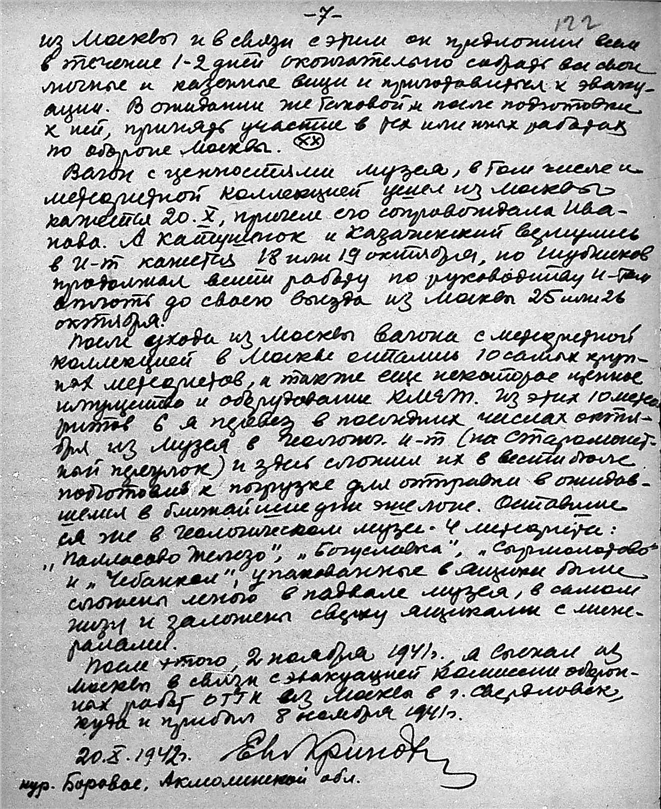 -7-
122
из Москвы и в связи с этим он предложил всем
в течение 1-2 дней окончательно собрать все свои
личные и казенные вещи и приготовиться к эваку-
ации. В ожидании же таковой и после подготовки
к ней, принять участие в тех или иных работах
по обороне Москвы. (xx)
Вагон с ценностями музея, в том числе и
метеоритной коллекцией ушел из Москвы
кажется 20.X, причем его сопровождала Ива-
нова. А Катушенок и Казаченский вернулись
в И-т кажется 18 или 19 октября, но Шубников
продолжал вести работу по руководству И-том
вплоть до своего выезда из Москвы 25 или 26
октября.
После ухода из Москвы вагона с метеоритной
коллекцией в Москве остались 10 самых круп-
ных метеоритов, а также еще некоторое ценное
имущество и оборудование КМЕТ. Из этих 10 метео-
ритов 6 я перевез в последних числах октя-
бря из музея в Геологич. и-т (на Старомонет-
ный переулок) и здесь сложил их в вестибюле
подготовив к погрузке для отправки в ожидав-
шемся в ближайшие дни эшелоне. Оставшие-
ся же в геологическом музее 4 метеорита:
"Палласово Железо", "Богуславка", "Сыромолотово"
и "Чебанкол", упакованные в ящики были
сложены мною в подвале музея, в самом
низу и заложены сверху ящиками с мине-
ралами.
После этого, 2 ноября 1941г., я выехал из
Москвы в связи с эвакуацией Комиссии оборон-
ных работ ОГГН из Москвы в г. Свердловск,
куда и прибыл 8 ноября 1941г.
20.X.1942г. Ев Кринов
кур. Боровое, Акмолинской обл.